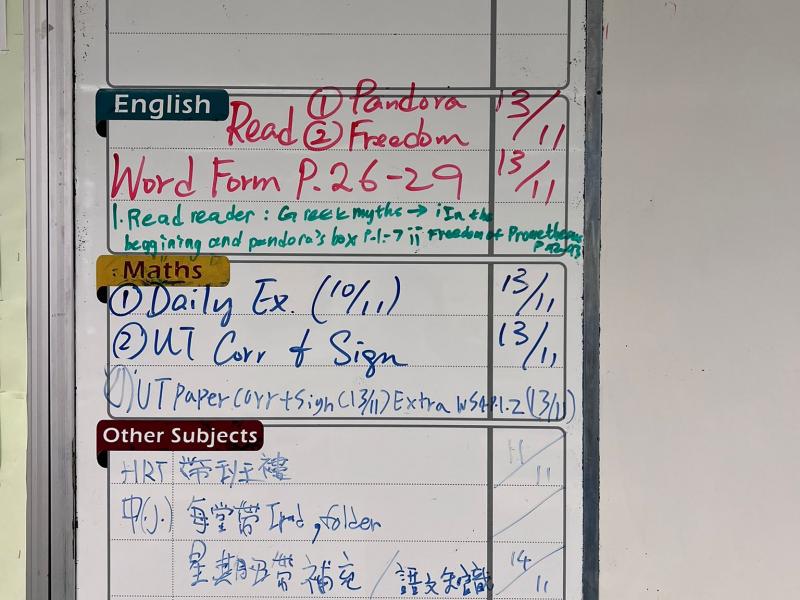 English
Read ① Pandora 13/11
② Freedom
Word Form P.26-29 13/11
1. Read reader : Greek myths → i In the
beggining and pandora's box P.1-7 ii Freedom of Prometheus
Maths
① Daily Ex. (10/11) 13/11
② UT Corr + Sign 13/11
UT Paper Corr + Sign (13/11) Extra WS4 P.1-2 (13/11)
Other Subjects
HRT 帶到王禮 11
中(J.) 每堂帶 Ipad, folder
星期四帶補充 / 語文知識 14/11